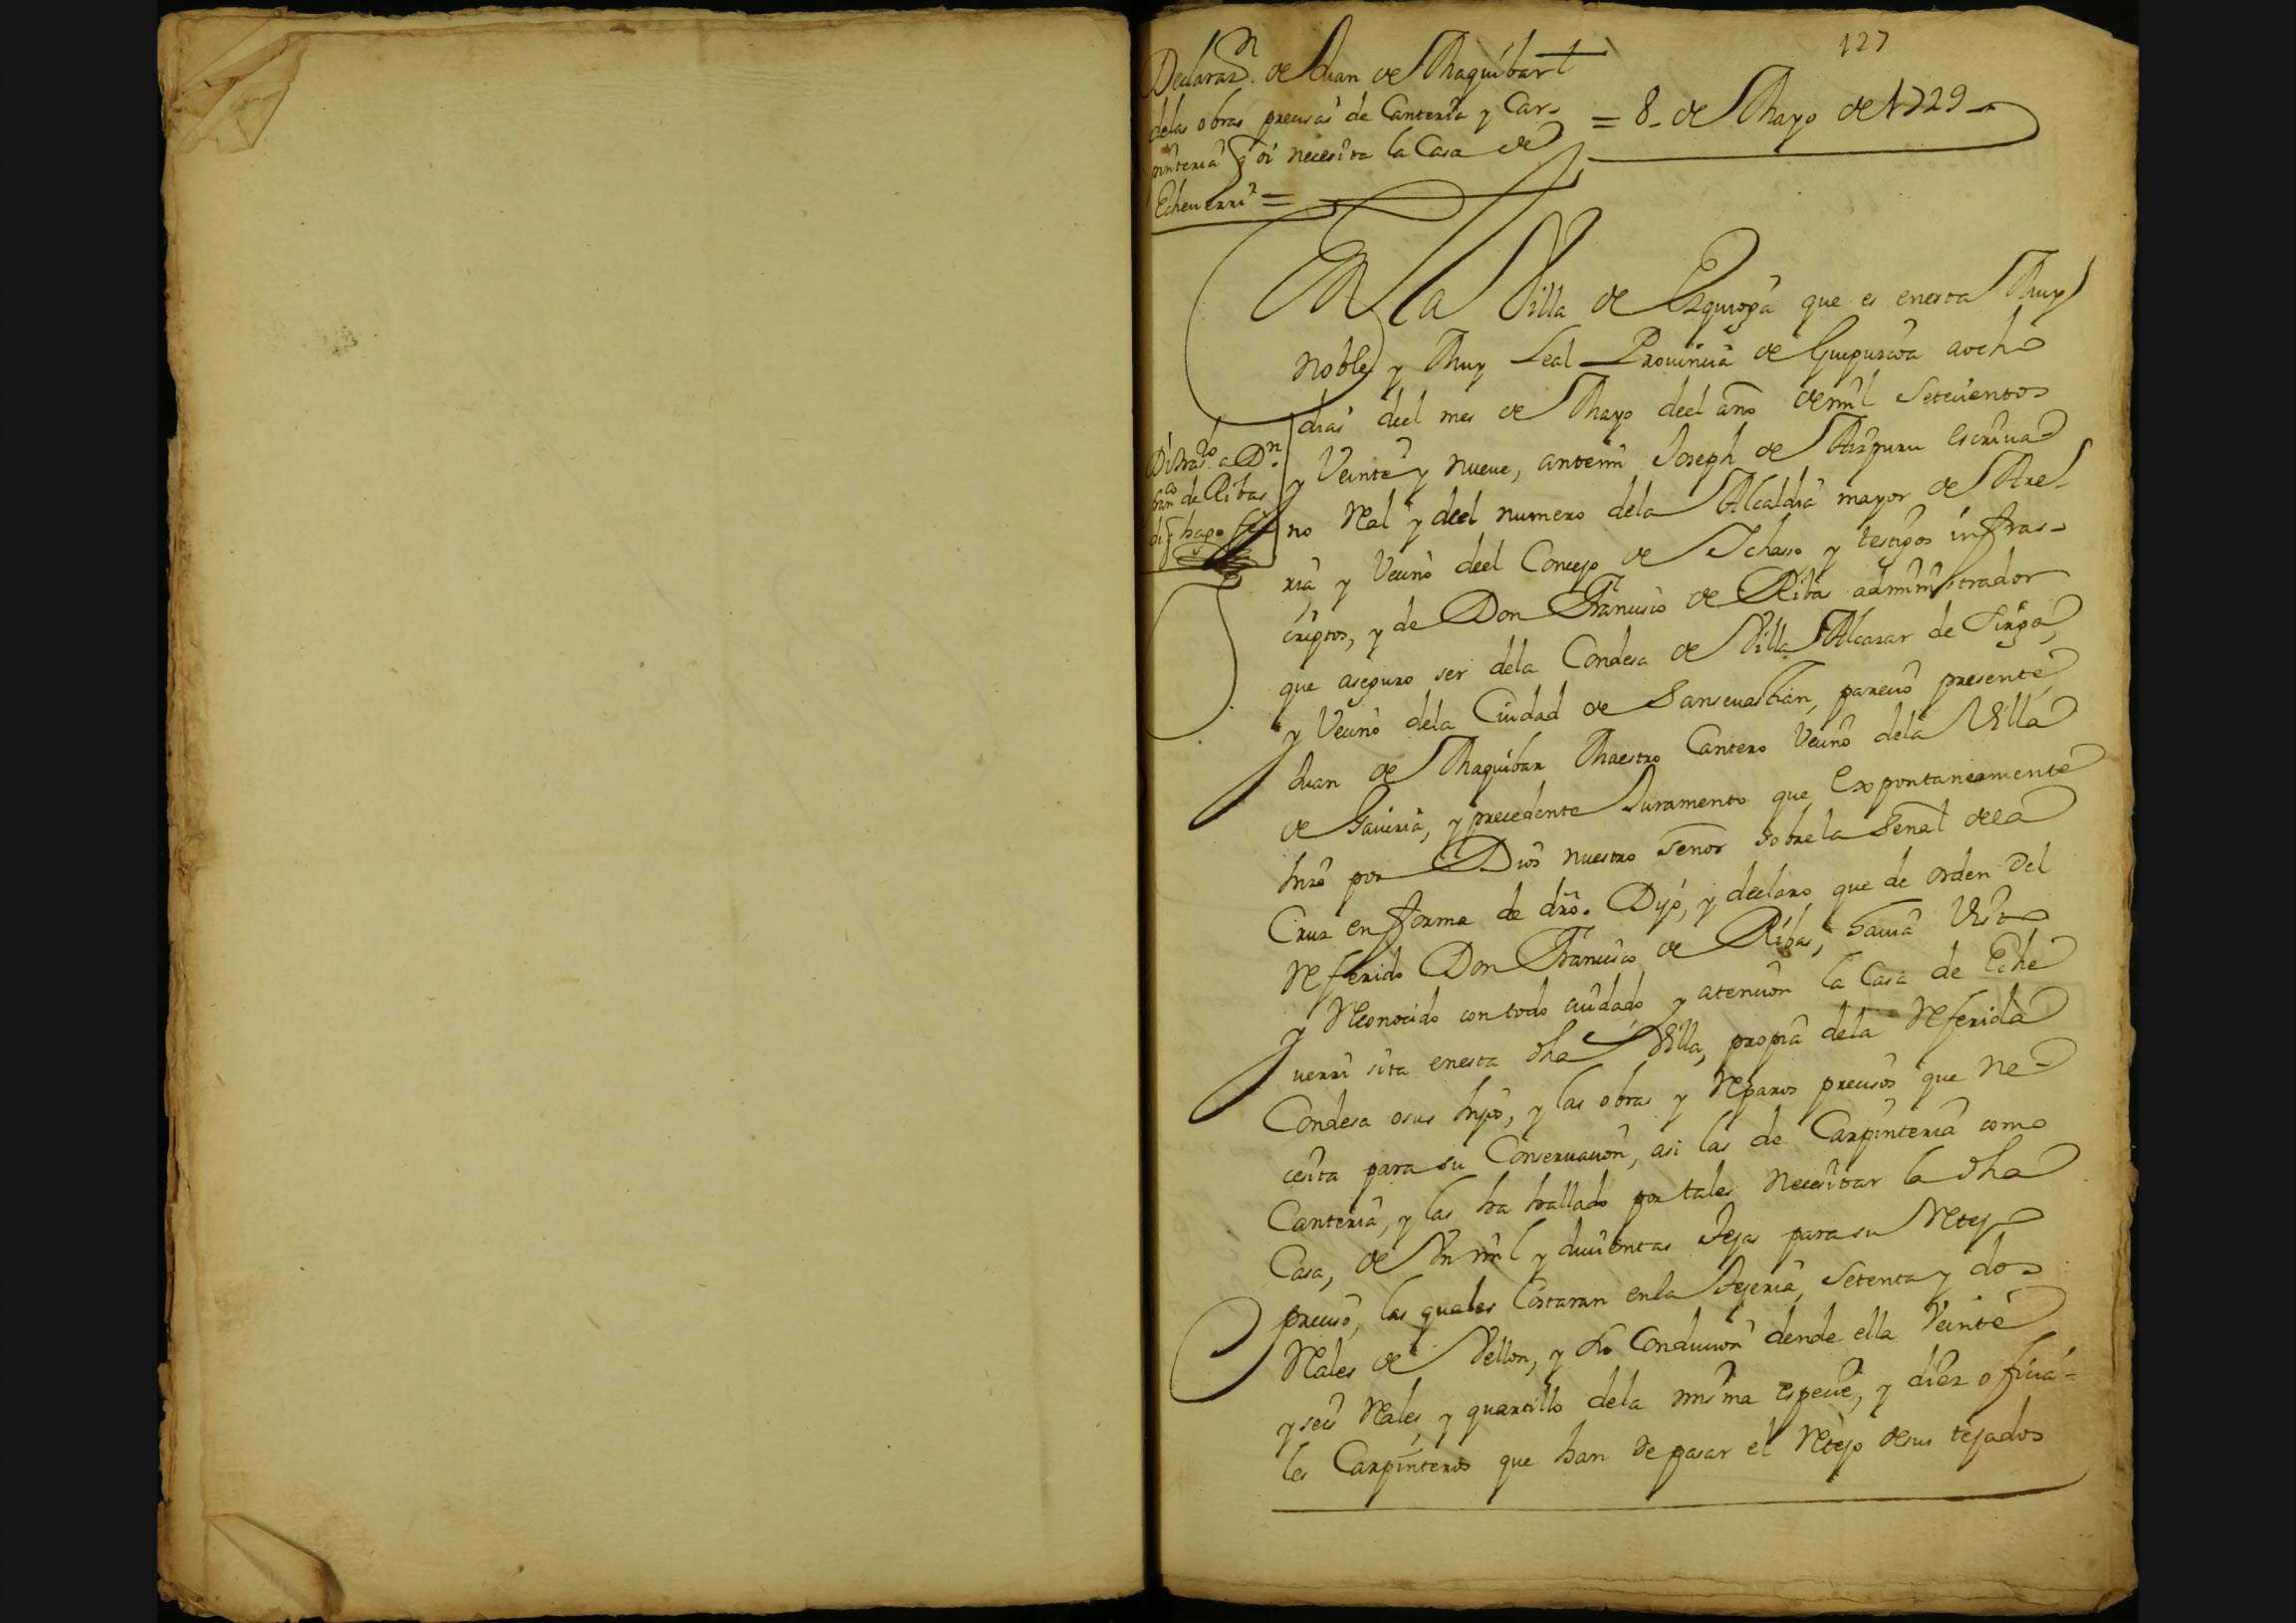 127
Declaraz.n de Juan de Maquibar
delas obras precisas de Canteria y Car-
pinteria q̃ oi necesita la Casa de
Echeuerri =
= 8 - de Mayo de 1729 -
En la Villa de Ezquioga que es enesta Muy
Noble y Muy Leal Prouincia de Guipuzcoa aocho
dias deel mes de Mayo deel año demil Setecientos
y Veinte y nueue, antemi Joseph de Aizpuru escriua-
no Real y deel numero dela Alcaldia mayor de Are-
ria y Vecino deel Concejo de Ichaso y testigos infras-
criptos, y de Don Francisco de Ribas administrador
que aseguro ser dela Condesa de Villa Alcazar de Sirga,
y Vecino dela Ciudad de Sanseuastian, parecio presente
Juan de Maquibar Maestro Cantero Vecino dela Villa
de Gauiria, y precedente Juramento que Expontaneamente
hizo por Dios nuestro señor sobre la Señal dela
Cruz en forma de dro. Dijo, y declaro que de orden del
Referido Don Francisco de Ribas, hauia Visto
y Reconocido con todo cuidado y atencion la Casa de Eche
uerri sita enesta dha Villa, propia dela Referida
Condesa osus hijos, y las obras y Reparos precisos que Ne-
cesita para su Conseruacion, asi las de Carpinteria como
Canteria, y las ha hallado por tales Necesitar la dha
Casa, de Un mil y ducientas tejas para su Retejo
preciso, las quales Costaran enla tejeria, Setenta y dos
Reales de Vellon, y la Conducion dende ella Veinte
y seis Reales y quartillo dela misma especie, y diez oficia-
les Carpinteros que han de pasar el Retejo desus tejados
Di tras.do a D.n
Fran.co de Ribas
de q̃ hago fee